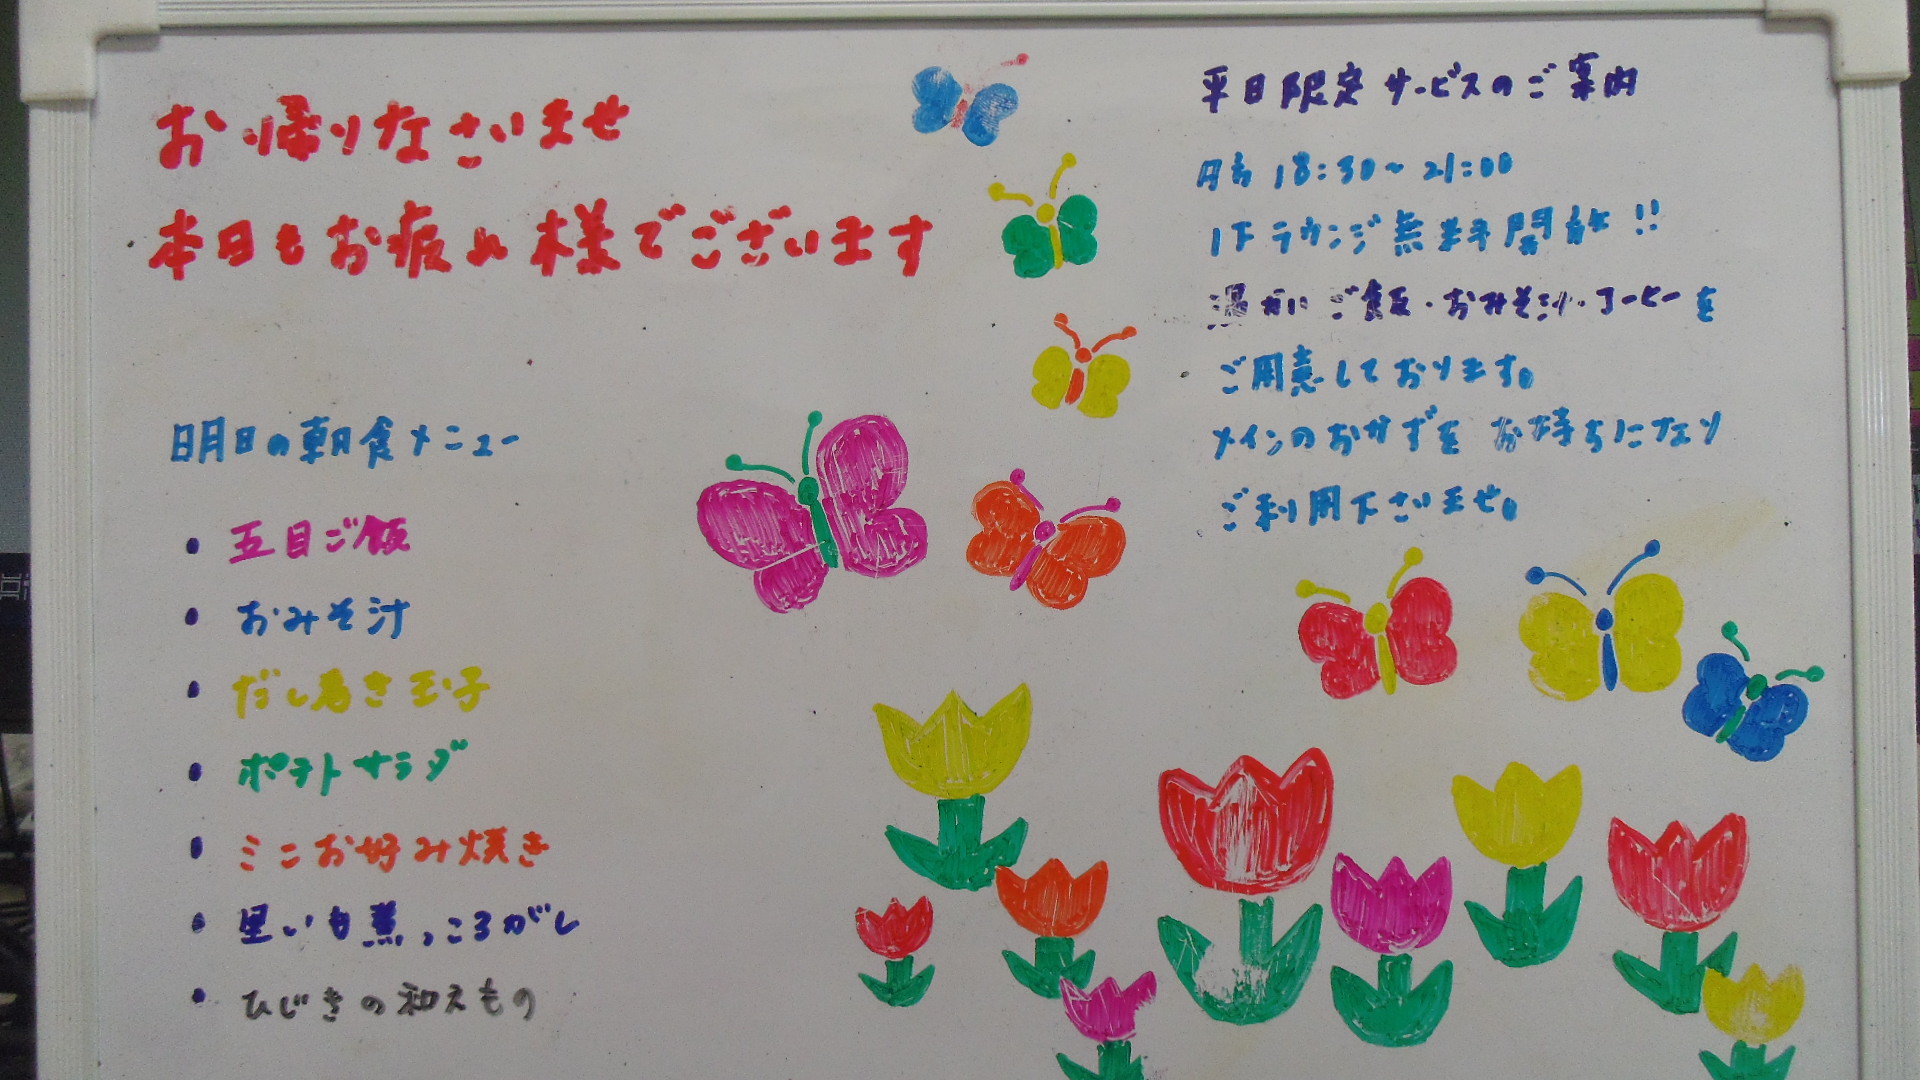 お帰りなさいませ
本日もお疲れ様でございます
明日の朝食メニュー
・五目ご飯
・おみそ汁
・だし巻き玉子
・ポテトサラダ
・ミニお好み焼き
・里いも煮っころがし
・ひじきの和えもの
平日限定サービスのご案内
18:30~21:00
1Fラウンジ無料開放!!
温かいご飯・おみそ汁・コーヒーを
ご用意しております。
メインのおかずをお持ちになり
ご利用下さいませ。